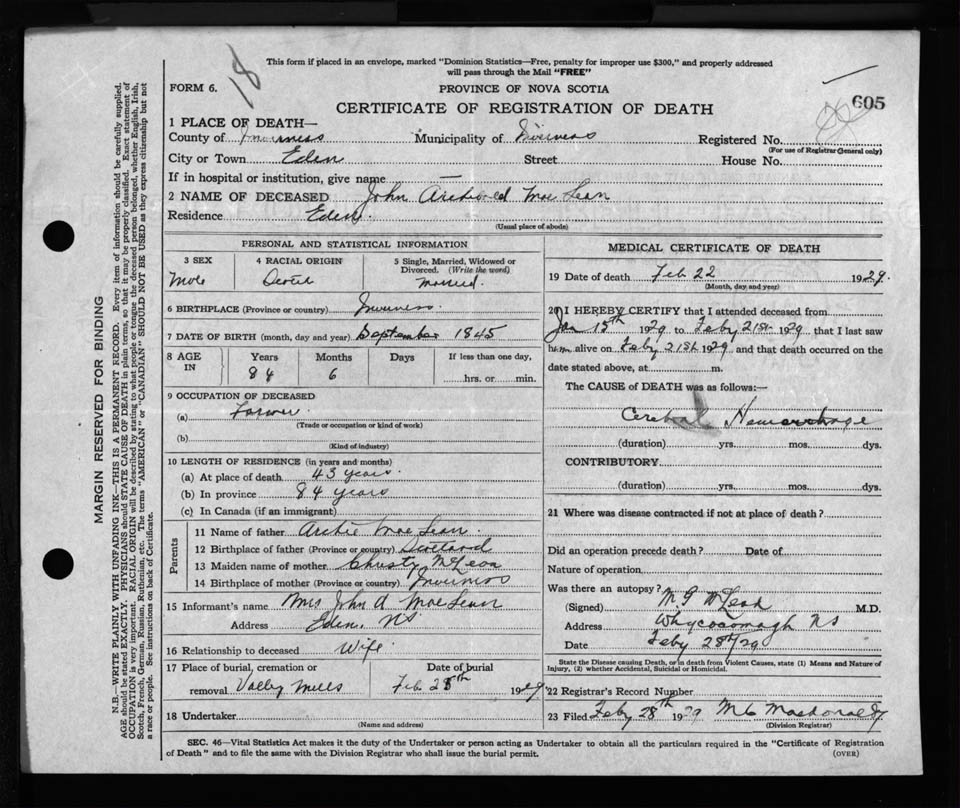 18
This form if placed in an envelope, marked "Dominion Statistics—Free, penalty for improper use $300," and properly addressed
will pass through the Mail "FREE"
FORM 6.
PROVINCE OF NOVA SCOTIA
605
CERTIFICATE OF REGISTRATION OF DEATH
1 PLACE OF DEATH—
County of Inverness Municipality of Inverness Registered No.
(For use of Registrar General only)
City or Town Eden Street House No.
If in hospital or institution, give name —
2 NAME OF DECEASED John Archibald Mac Lean
Residence Eden.
(Usual place of abode)
PERSONAL AND STATISTICAL INFORMATION
3 SEX 4 RACIAL ORIGIN 5 Single, Married, Widowed or
Divorced. (Write the word)
Male Scotch married.
6 BIRTHPLACE (Province or country) Inverness.
7 DATE OF BIRTH (month, day and year) September 1845
8 AGE IN Years Months Days If less than one day,
84 6 hrs. or min.
9 OCCUPATION OF DECEASED
(a) Farmer.
(Trade or occupation or kind of work)
(b)
(Kind of industry)
10 LENGTH OF RESIDENCE (in years and months)
(a) At place of death 43 years.
(b) In province 84 years
(c) In Canada (if an immigrant)
Parents
11 Name of father Archie Mac Lean.
12 Birthplace of father (Province or country) Scotland
13 Maiden name of mother Christy McLean
14 Birthplace of mother (Province or country) Inverness
15 Informant's name Mrs John A Mac Lean
Address Eden. NS
16 Relationship to deceased Wife
17 Place of burial, cremation or Date of burial
removal Valley Mills Feb 25th 1929
18 Undertaker
(Name and address)
MEDICAL CERTIFICATE OF DEATH
19 Date of death Feb 22 1929.
(Month, day and year)
20 I HEREBY CERTIFY that I attended deceased from
Jan 15th 1929 to Feby 21st 1929, that I last saw
him alive on Feby 21st 1929 and that death occurred on the
date stated above, at m.
The CAUSE OF DEATH was as follows:—
Cerebral Hemorrhage
(duration) yrs. mos. dys.
CONTRIBUTORY
(duration) yrs. mos. dys.
21 Where was disease contracted if not at place of death?
Did an operation precede death? Date of
Nature of operation
Was there an autopsy?
(Signed) McLeod M.D.
Address Whycocomagh NS
Date Feby 28/29
State the Disease causing Death, or in death from Violent Causes, state (1) Means and Nature of
Injury, (2) whether Accidental, Suicidal or Homicidal.
22 Registrar's Record Number
23 Filed Feby 28th 1929 Macdonald
(Division Registrar)
SEC. 46—Vital Statistics Act makes it the duty of the Undertaker or person acting as Undertaker to obtain all the particulars required in the "Certificate of Registration
of Death" and to file the same with the Division Registrar who shall issue the burial permit.
(OVER)
MARGIN RESERVED FOR BINDING
N.B.—WRITE PLAINLY WITH UNFADING INK—THIS IS A PERMANENT RECORD. Every item of information should be carefully supplied.
AGE should be stated EXACTLY. PHYSICIANS should STATE CAUSE OF DEATH in plain terms, so that it may be properly classified. Exact statement of
OCCUPATION is very important. RACIAL ORIGIN will be described by stating to what people or tongue the deceased person belonged, whether English, Irish,
Scotch, French, German, Russian, Ruthenian, etc. The terms "AMERICAN" or "CANADIAN" SHOULD NOT BE USED as they express citizenship but not
a race or people. See instructions on back of Certificate.